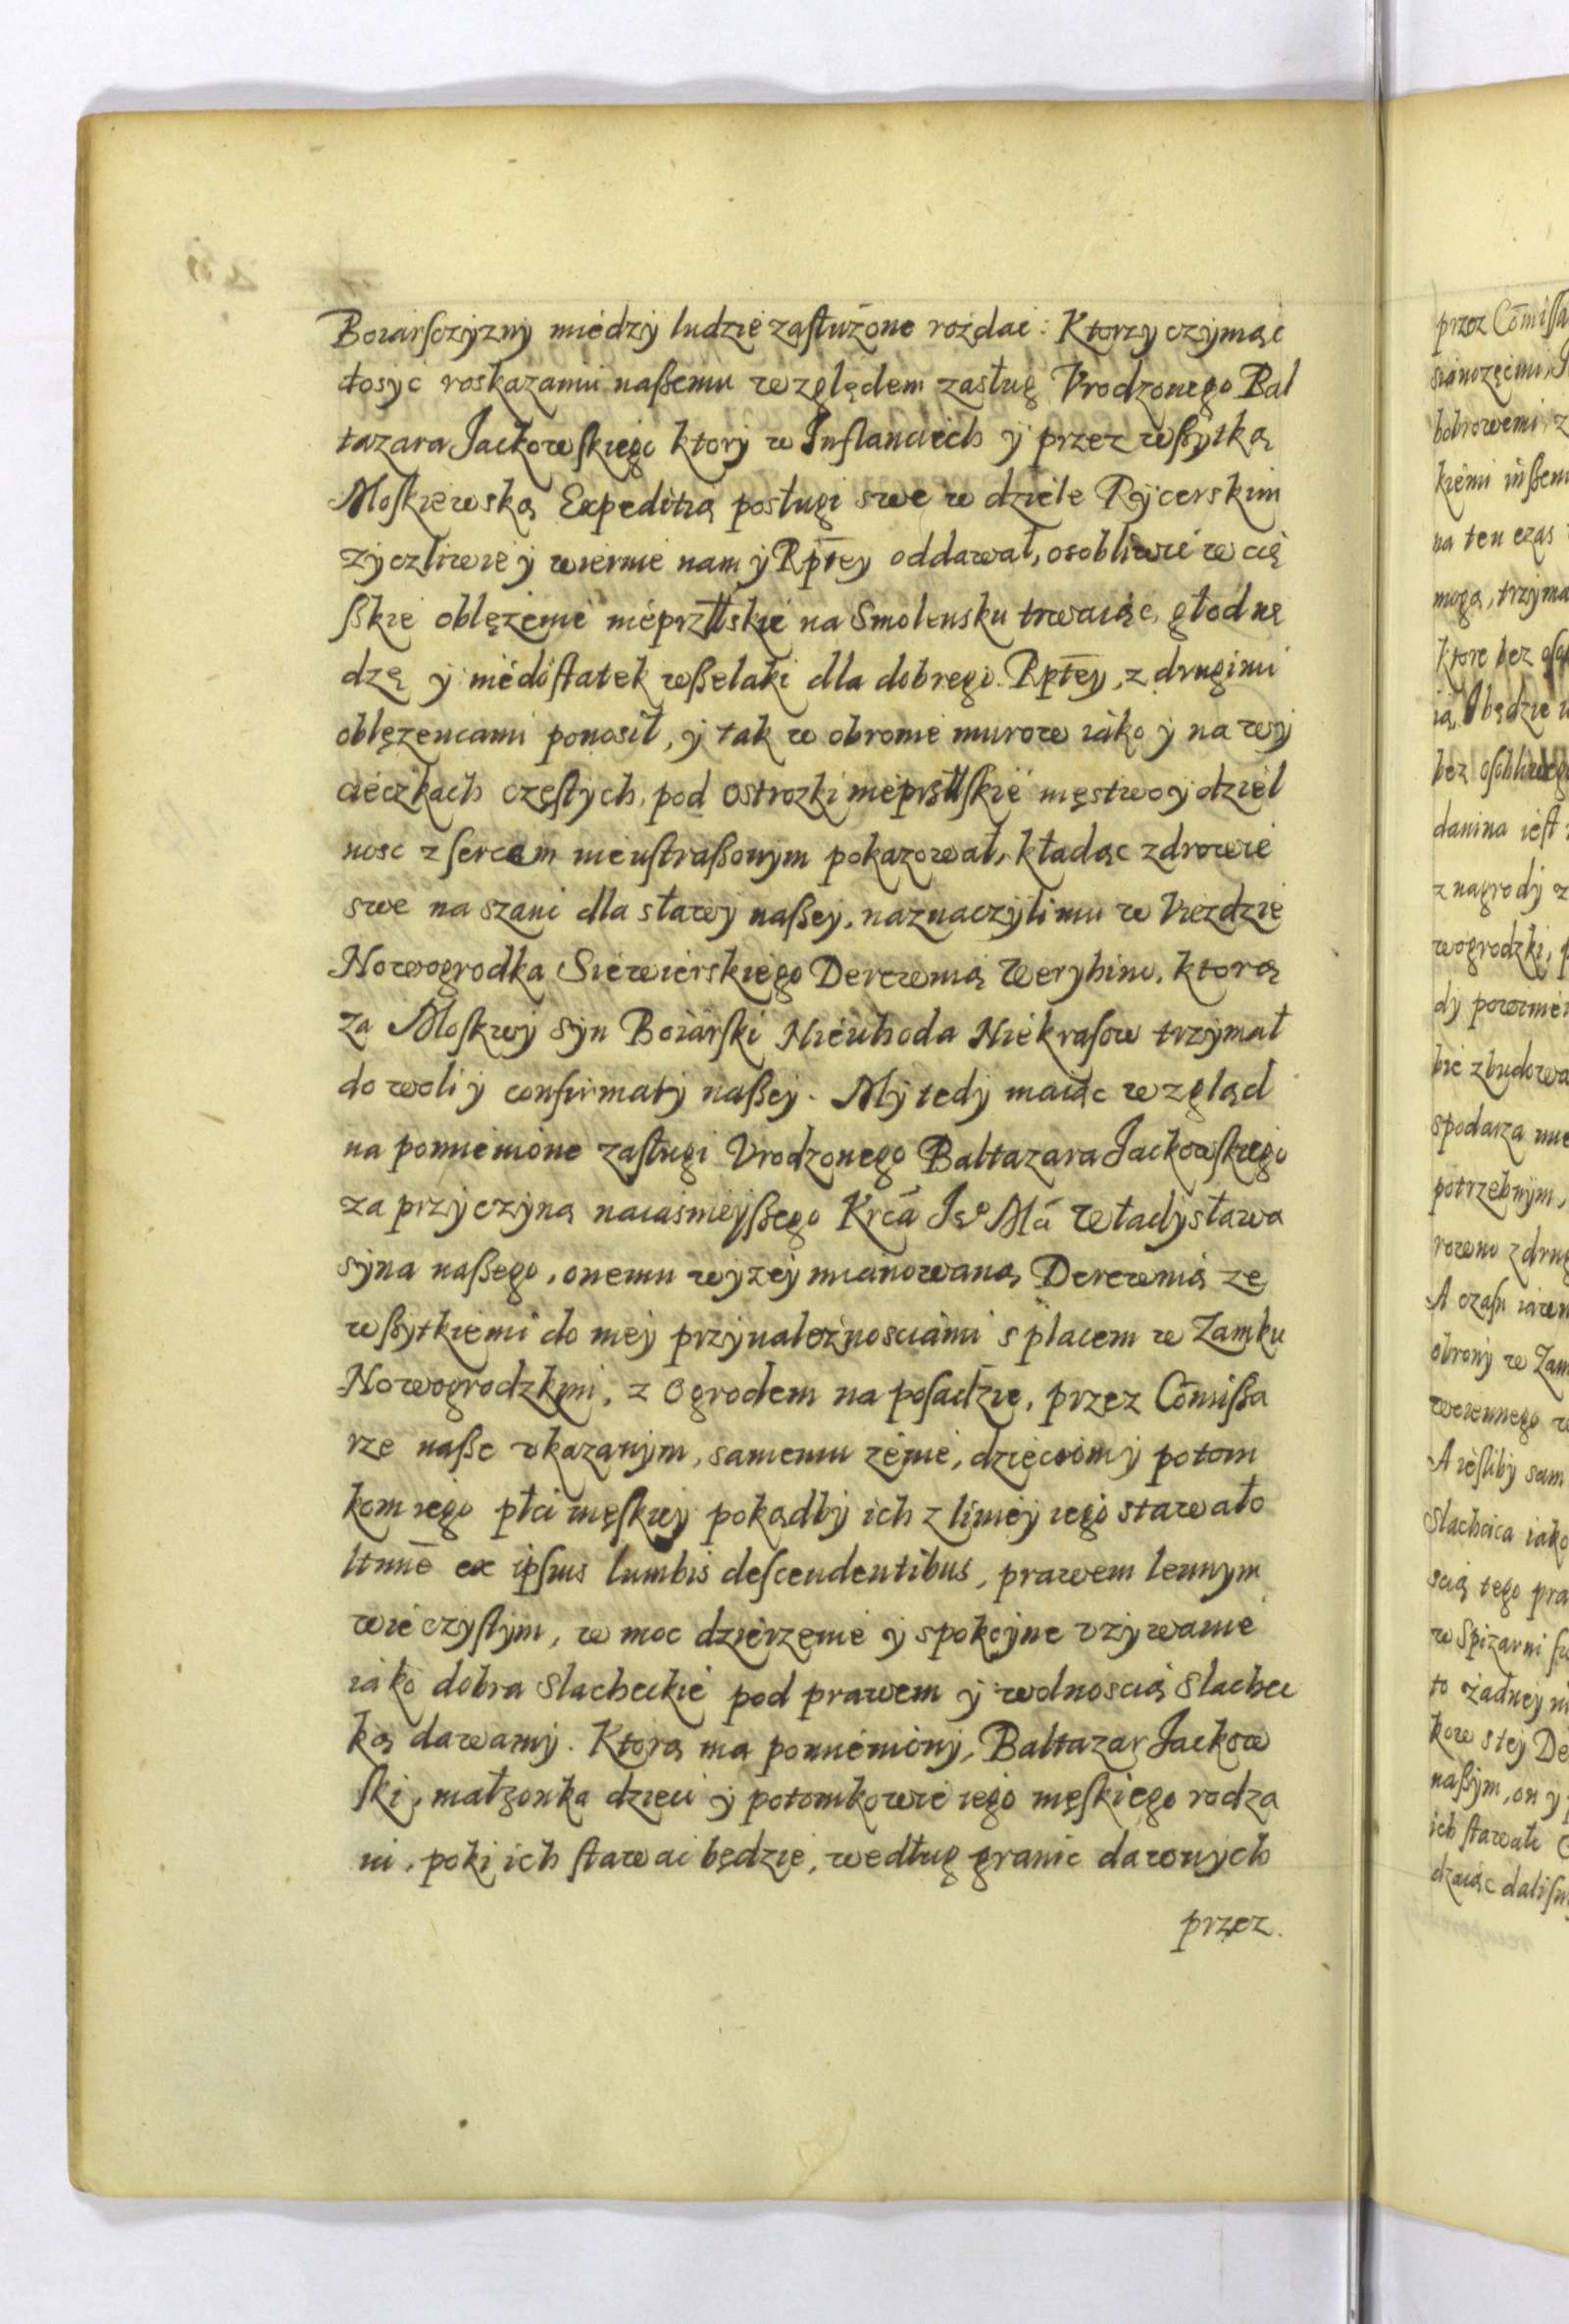 Boiarsczyzny między ludzie zasłużone rozdac: Ktorzy czyniąc
dosyc roskazaniu naßemu względem zasług Vrodzonego Bal
tazara Jackowskiego ktory w Inflanciech y przez wßytką
Moskiewską Expeditią posługi swe w dziele Rycerskim
zyczliwie y wiernie nam y Rptey oddawał, osobliwie w cię
ßkie oblęzenie nieprzłskie na Smolensku trwaiąc, głod nę
dzę y niedostatek wßelaki dla dobrego Rptey, z drugimi
oblęzencami ponosił, y tak w obronie murow iako y na wy
cieczkach częstych, pod ostrozki nieprzłskie męstwo y dziel
nosc z sercem nieustraßonym pokazował, kładąc zdrowie
swe na szanc dla sławy naßey, naznaczyli mu w Vieździe
Nowogrodka Siewierskiego Derewnią Werybino, ktorą
za Moskwy syn Boiarski Nieuhoda Niekrasow trzymał
do woli y confirmaty naßey. My tedy maiąc wzgląd
na pomienione zasługi Vrodzonego Baltazara Jackowskiego
za przyczyną naiasnieyßego Krca Jego Mci Władysława
syna naßego, onemu wyzey mianowaną Derewnią ze
wßytkiemi do niey przynaleznosciami s placem w Zamku
Nowogrodzkim, z Ogrodem na posadzie, przez Comißa
rze naße vkazanym, samemu zenie, dzieciom y potom
kom iego płci męskiey pokądby ich z liniey iego stawało
ltime ex ipsius lumbis descendentibus, prawem lennym
wieczystym, w moc dzierzenie y spokoyne vzywanie
iako dobra slacheckie pod prawem y wolnoscią slachec
ką dawamy. Ktorą ma pomieniony, Baltazar Jackow
ski, małzonka dzieci y potomkowie iego męskiego rodza
iu, poki ich stawac będzie, według granic dawnych
przez.
przez Comissa
bobrowemi, z
kiemi inßem
na ten czas
mogą, trzyma
Ktore bez oso
ią, A będzie
bez osobliwego
danina iest
z nagrody z
wogrodzki, p
dy powinien
bie zbudowa
spodarza
potrzebnym,
rowno z drug
A czasu
obrony w Zam
woiennego w
A iesliby sam
slachcica iako
scią tego pra
w Spizarni
to zadney ni
kow s tey De
naßym, on y p
ich stawało
dzaiąc dalis